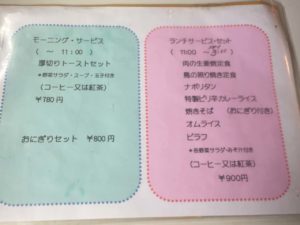 モーニング・サービス
( ～ 11:00 )
厚切りトーストセット
＊野菜サラダ・スープ・玉子付き
(コーヒー又は紅茶)
￥780円
おにぎりセット ￥800円
ランチサービス・セット
(11:00 ～
肉の生姜焼定食
鳥の照り焼き定食
ナポリタン
特製ピリ辛カレーライス
焼きそば (おにぎり付き)
オムライス
ピラフ
＊各野菜サラダ・みそ汁付き
(コーヒー又は紅茶)
￥900円